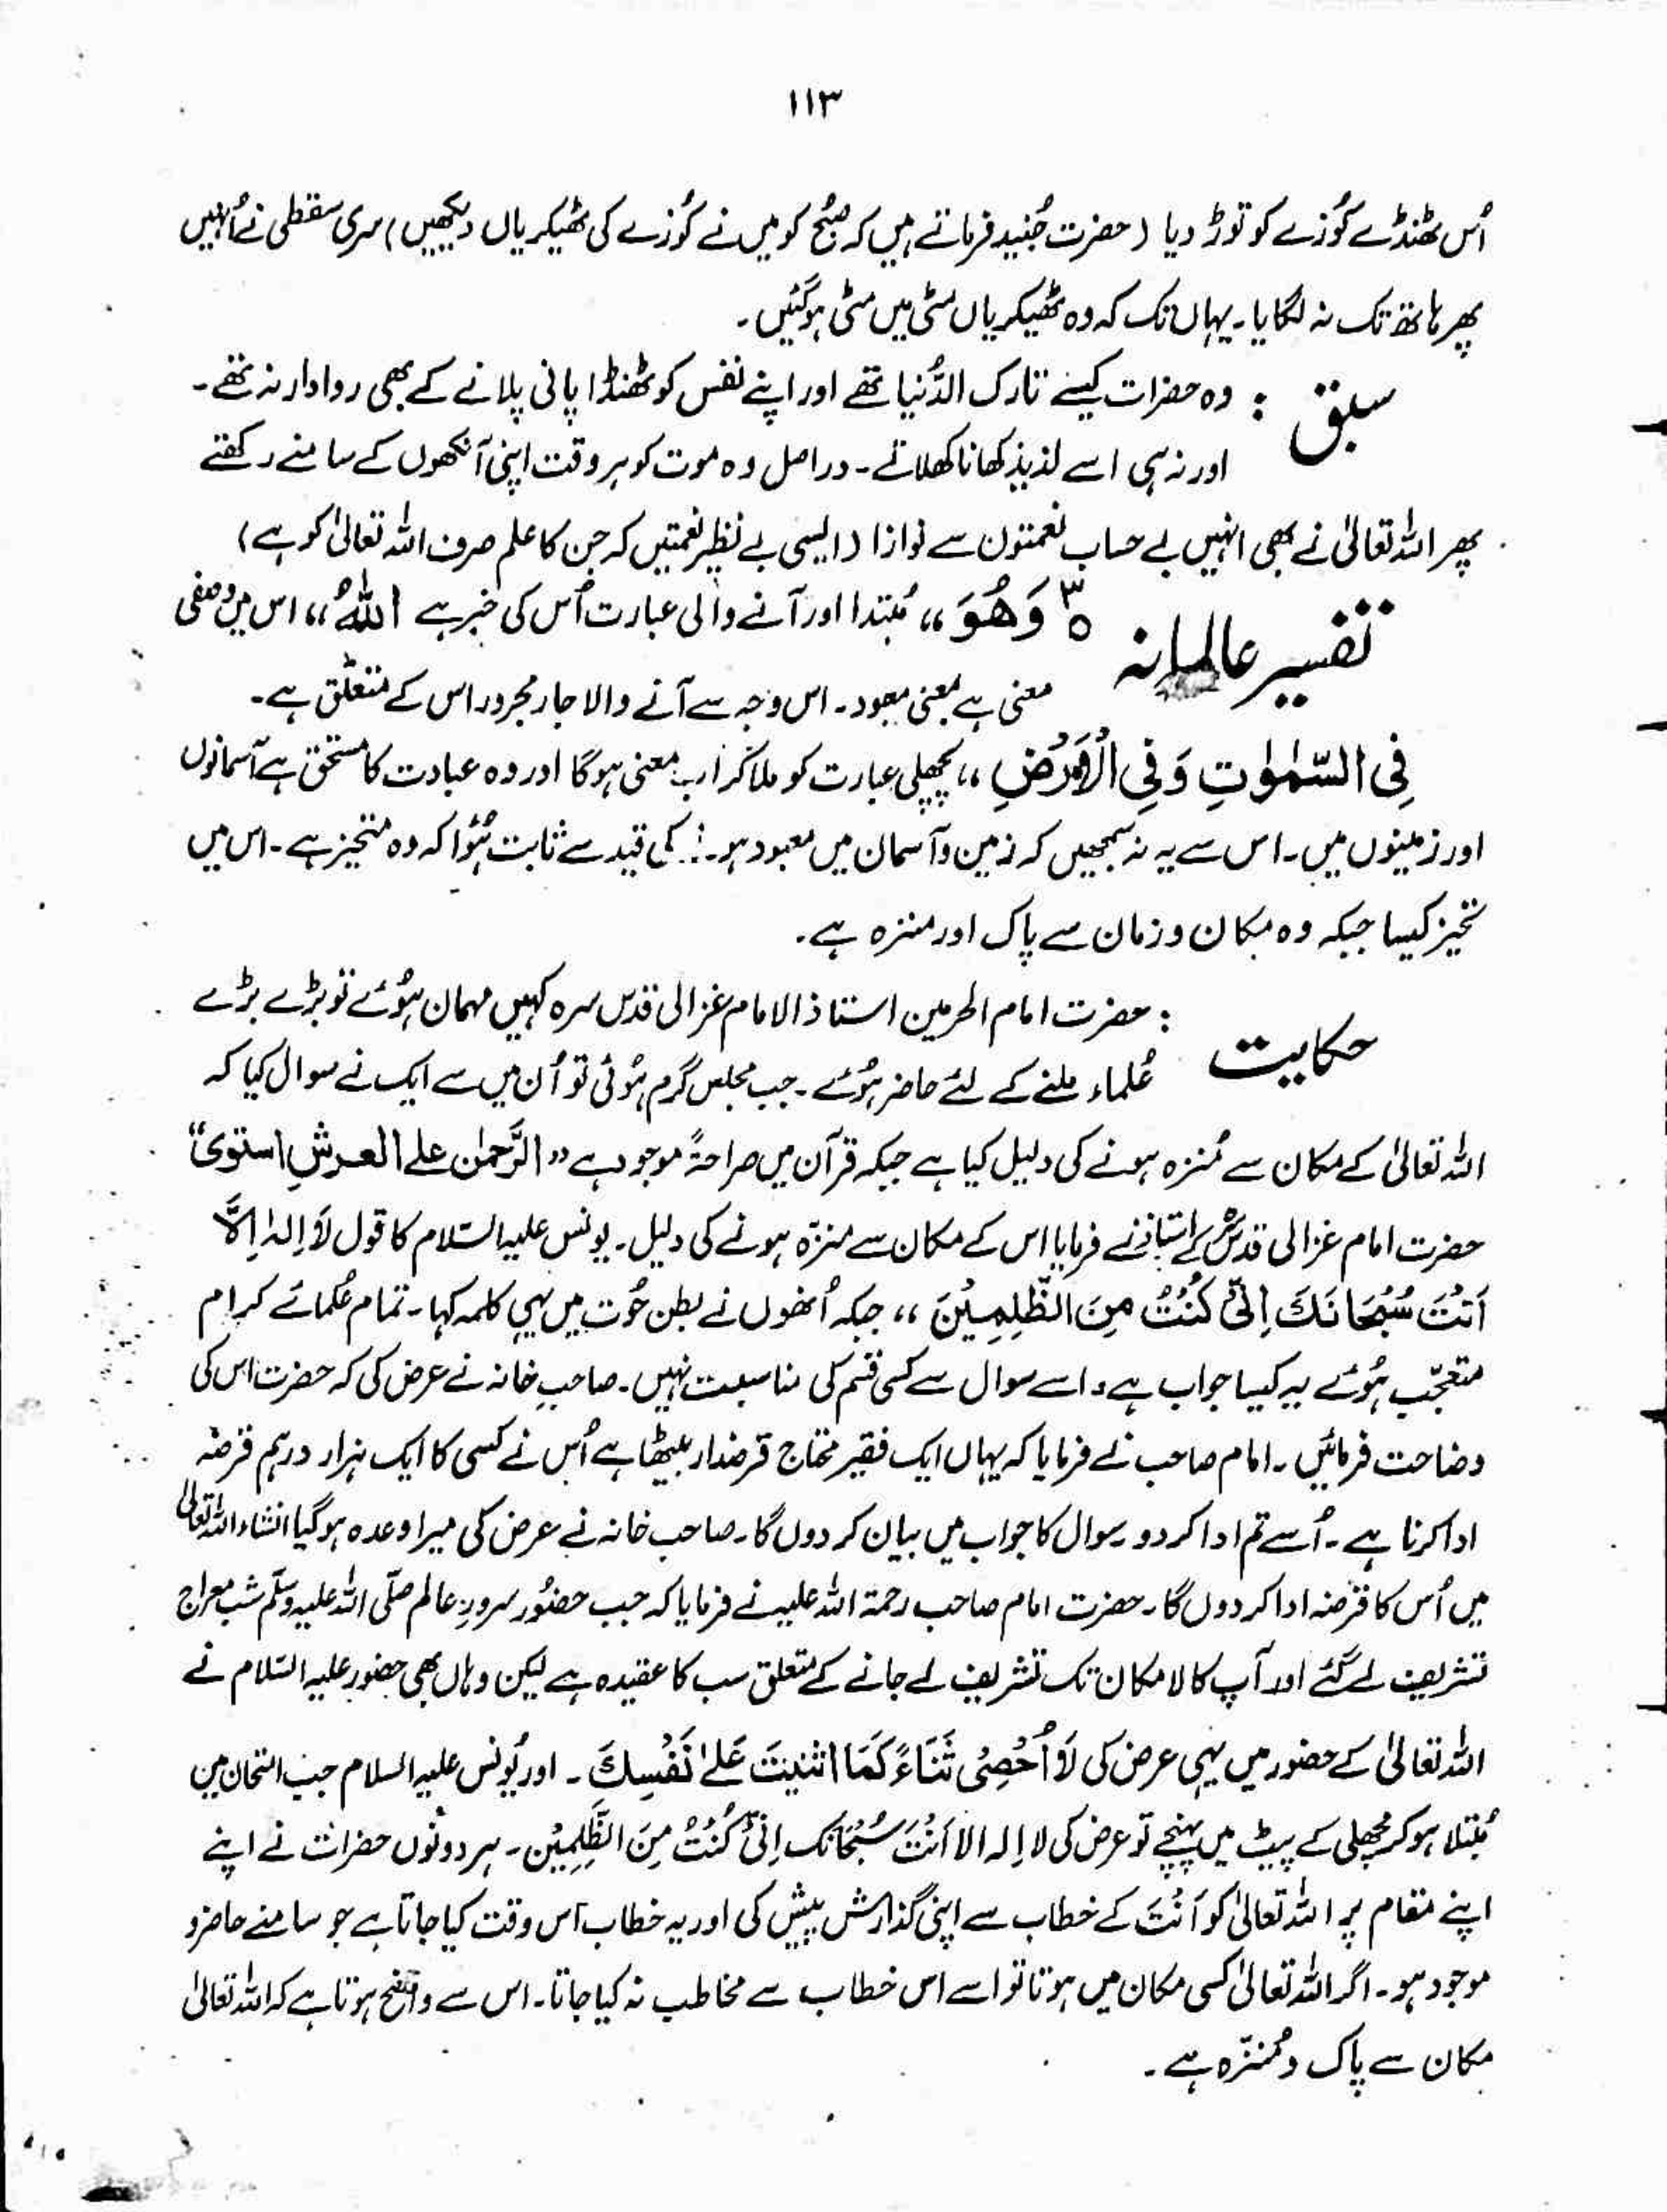 ۱۱۳
اُس ٹھنڈے کُوزے کو توڑ دیا (حضرت جُنید فرماتے ہیں کہ صبُح کو میں نے کُوزے کی ٹھیکریاں دیکھیں) سری سقطی نے اُنہیں
پھر ہاتھ تک نہ لگایا۔ یہاں تک کہ وہ ٹھیکریاں مٹی میں مٹی ہوگئیں۔
سبق : وہ حضرات کیسے تارک الدُّنیا تھے اور اپنے نفس کو ٹھنڈا پانی پلانے کے بھی روادار نہ تھے۔
اور نہ ہی اسے لذیذ کھانا کھلاتے۔ دراصل وہ موت کو ہر وقت اپنی آنکھوں کے سامنے رکھتے
پھر اللہ تعالیٰ نے بھی انہیں بے حساب نعمتوں سے نوازا (ایسی بے نظیر نعمتیں کہ جن کا علم صرف اللہ تعالیٰ کو ہے)
تفسیر عالمانہ ۳ہ وَھُوَ ،، مُبتدا اور آنے والی عبارت اُس کی خبر ہے اللّٰہُ ،، اس میں وصفی
معنی ہے بمعنی معبود۔ اس وجہ سے آنے والا جار مجرور اس کے متعلّق ہے۔
فِی السَّمٰوٰتِ وَفِی الْاَرْضِ ،، پچھلی عبارت کو ملا کر اب معنی ہوگا اور وہ عبادت کا مستحق ہے آسمانوں
اور زمینوں میں۔ اس سے یہ نہ سمجھیں کہ زمین و آسمان میں معبود ہو۔ کی قید سے ثابت ہُوا کہ وہ متحیز ہے۔ اس میں
تحیز کیسا جبکہ وہ مکان و زمان سے پاک اور منزہ ہے۔
حکایت : حضرت امام الحرمین استاذ الامام غزالی قدس سرہ کہیں مہمان ہُوئے تو بڑے بڑے
عُلماء ملنے کے لئے حاضر ہُوئے۔ جب مجلس گرم ہُوئی تو اُن میں سے ایک نے سوال کیا کہ
اللہ تعالیٰ کے مکان سے مُنزہ ہونے کی دلیل کیا ہے جبکہ قرآن میں صراحۃً موجود ہے ,, الرَّحمٰن علی العرشِ استویٰ“
حضرت امام غزالی قدس سرہ کے استاذ نے فرمایا اس کے مکان سے منزّہ ہونے کی دلیل۔ یونس علیہ السّلام کا قول لَا اِلٰہَ اِلَّا
اَنْتَ سُبْحَانَكَ اِنِّیْ کُنْتُ مِنَ الظّٰلِمِیْنَ ،، جبکہ اُنھوں نے بطن حُوت میں یہی کلمہ کہا۔ تمام عُلمائے کرام
متعجّب ہُوئے یہ کیسا جواب ہے، اسے سوال سے کسی قسم کی مناسبت نہیں۔ صاحبِ خانہ نے عرض کی کہ حضرت اس کی
وضاحت فرمائیں۔ امام صاحب نے فرمایا کہ یہاں ایک فقیر محتاج قرضدار بیٹھا ہے اُس نے کسی کا ایک ہزار درہم قرضہ
ادا کرنا ہے۔ اُسے تم ادا کر دو سوال کا جواب میں بیان کر دوں گا۔ صاحب خانہ نے عرض کی میرا وعدہ ہوگیا انشاء اللہ تعالیٰ
میں اُس کا قرضہ ادا کر دوں گا۔ حضرت امام صاحب رحمۃ اللہ علیہ نے فرمایا کہ جب حضُور سرورِ عالم صلّی اللہ علیہ وسلّم شب معراج
تشریف لے گئے اور آپ کا لامکان تک تشریف لے جانے کے متعلق سب کا عقیدہ ہے لیکن وہاں بھی حضور علیہ السّلام نے
اللہ تعالیٰ کے حضور میں یہی عرض کی لَا اُحْصِیْ ثَنَاءً کَمَا اثنیتَ عَلیٰ نَفْسِكَ ۔ اور یُونس علیہ السلام جب امتحان میں
مُبتلا ہو کر مچھلی کے پیٹ میں پہنچے تو عرض کی لا اِلہ الا اَنْتَ سُبْحَانَک اِنِّیْ کُنْتُ مِنَ الظّٰلِمِیْن۔ ہر دونوں حضرات نے اپنے
اپنے مقام پر اللہ تعالیٰ کو اَنْتَ کے خطاب سے اپنی گذارش پیش کی اور یہ خطاب اس وقت کیا جاتا ہے جو سامنے حاضر و
موجود ہو۔ اگر اللہ تعالیٰ کسی مکان میں ہوتا تو اسے اس خطاب سے مخاطب نہ کیا جاتا۔ اس سے واضح ہوتا ہے کہ اللہ تعالیٰ
مکان سے پاک و مُنزّہ ہے۔